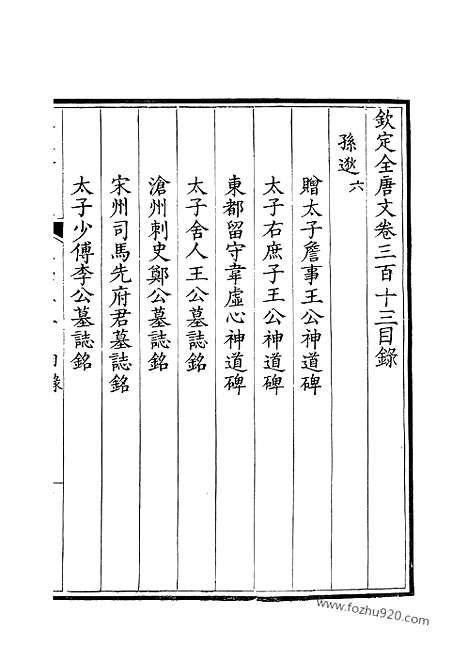 欽定全唐文卷三百十三目錄
孫逖六
贈太子詹事王公神道碑
太子右庶子王公神道碑
東都留守韋虛心神道碑
太子舍人王公墓誌銘
滄州刺史鄭公墓誌銘
宋州司馬先府君墓誌銘
太子少傅李公墓誌銘
目錄
www.fozhu920.com